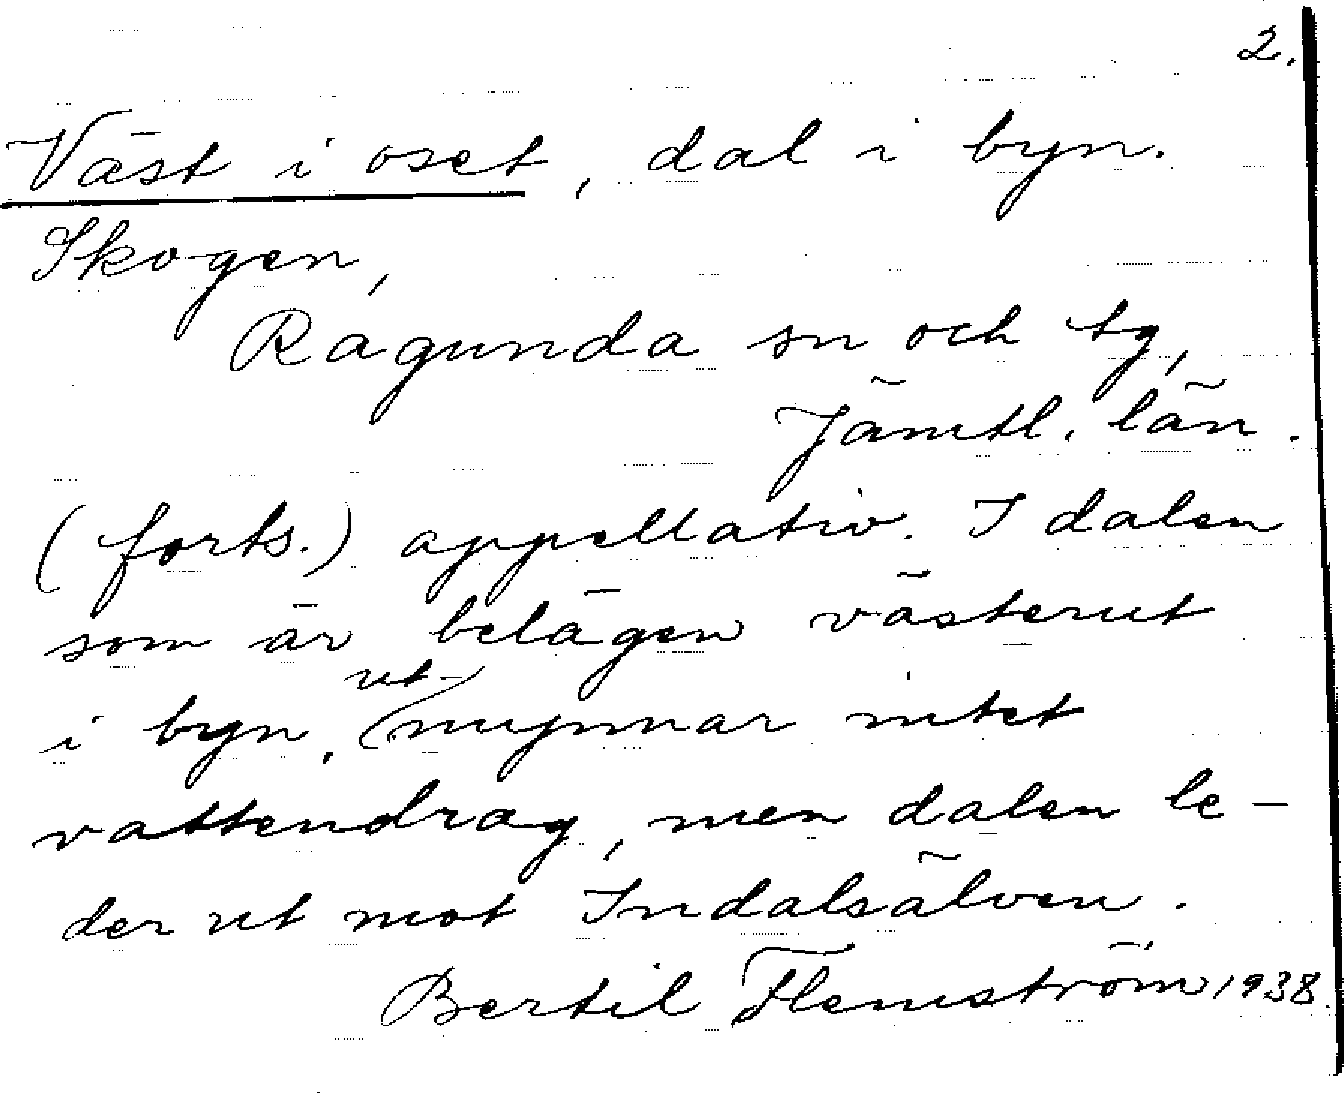 2.
Väst i oset, dal i byn.
Skogen,
Ragunda sn och tg,
Jämtl. län.
(forts.) appellativ. I dalen
som är belägen västerut
i byn, utmynnar intet
vattendrag, men dalen le-
der ut mot Indalsälven.
Bertil Flemström 1938.